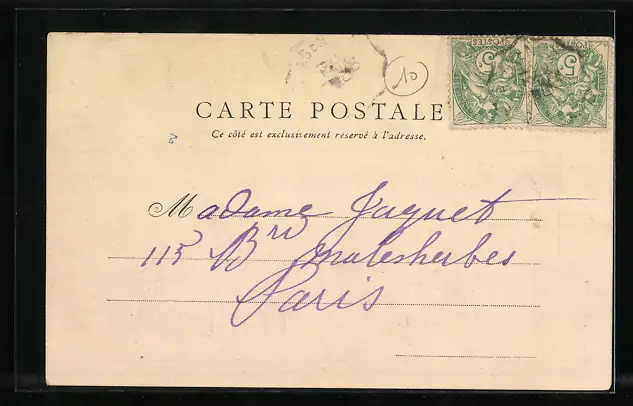 10
CARTE POSTALE
Ce côté est exclusivement réservé à l'adresse.
Madame Jaquet
115 Bd malesherbes
Paris
5
POSTES
5